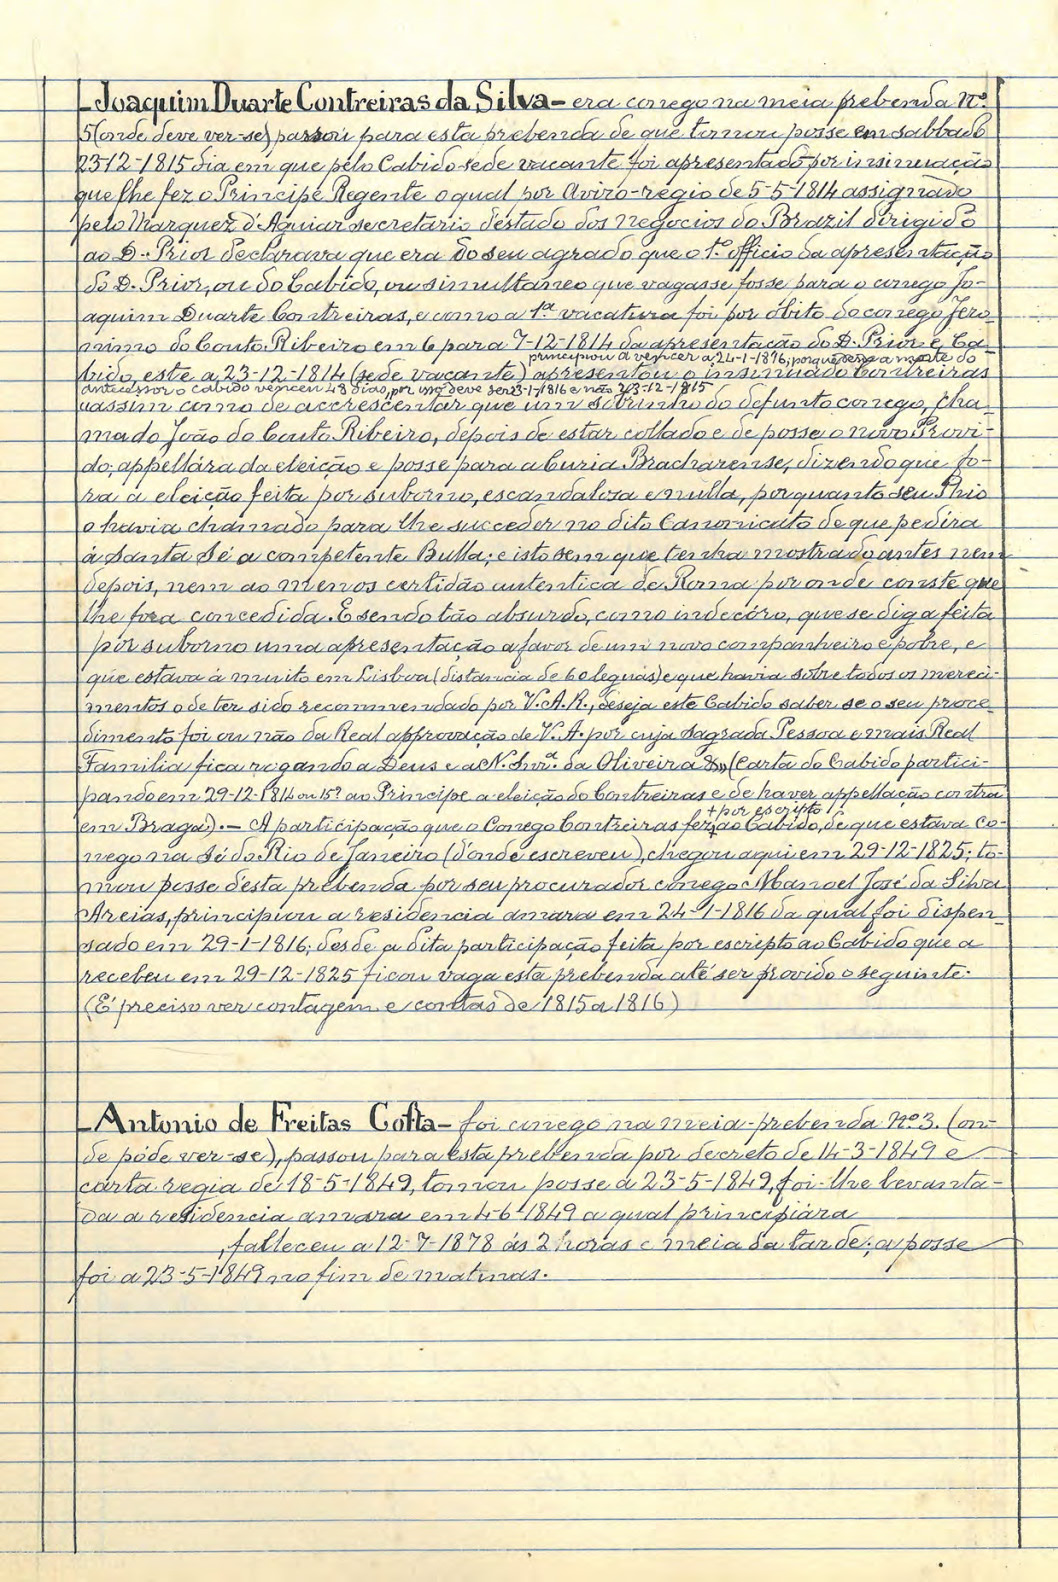 Joaquim Duarte Contreiras da Silva - era conego na meia prebenda Nº
5 (onde deve ver-se) passou para esta prebenda de que tomou posse em sabbado
23-12-1815 dia em que pelo Cabido sede vacante foi apresentado por insinuação
que lhe fez o Principe Regente o qual por Aviso-regio de 5-5-1814 assignado
pelo Marquez d'Aguiar secretario d'estado dos negocios do Brazil dirigido
ao D. Prior declarava que era do seu agrado que o 1º officio da apresentação
do D. Prior, ou do Cabido, ou simultaneo que vagasse fosse para o conego Jo-
aquim Duarte Contreiras, e como a 1ª vacatura foi por óbito do conego Jero-
nimo do Couto Ribeiro em 6 para 7-12-1814 da apresentação do D. Prior e Ca-
principiou a vencer a 24-1-1816, porque a morte do
bido, este a 23-12-1814 (sede vacante) apresentou o insinuado Contreiras
antecessor o cabido venceu 48 dias, por isso deve ser 23-1-1816 e não 23-12-1815
assim como de accrescentar que um sobrinho do defunto conego, cha-
mado João do Couto Ribeiro, depois de estar collado e de posse o novo Provi-
do, appellára da eleição e posse para a Curia Bracharense, dizendo que fo-
ra a eleição feita por suborno, escandalosa e nulla, por quanto seu Thio
o havia chamado para lhe succeder no dito Canonicato de que pedira
á Santa Sé a competente Bulla; e isto sem que tenha mostrado antes nem
depois, nem ao menos certidão autentica de Roma por onde conste que
lhe fora concedida. E sendo tão absurdo, como indecóro, que se diga feita
por suborno uma apresentação a favor de um novo companheiro e pobre, e
que estava á muito em Lisboa (distancia de 60 leguas) e que havia sobre todos os mereci-
mentos o de ter sido recommendado por V. A. R., deseja este Cabido saber se o seu proce-
dimento foi ou não da Real approvação de V. A. por cuja Sagrada Pessoa e mais Real
Familia fica rogando a Deus e a N. Snrª. da Oliveira &» (Carta do Cabido partici-
pando em 29-12-1814 ou 15? ao Principe a eleição do Contreiras e de haver appellação contra
+ por escripto
em Braga). - A participação que o Conego Contreiras fez + ao Cabido, de que estava co-
nego na Sé do Rio de Janeiro (d'onde escreveu), chegou aqui em 29-12-1825; to-
mou posse d'esta prebenda por seu procurador conego Manoel José da Silva
Areias, principiou a residencia amara em 24-1-1816 da qual foi dispen-
sado em 29-1-1816; desde a dita participação feita por escripto ao Cabido que a
recebeu em 29-12-1825 ficou vaga esta prebenda até ser provido o seguinte.
(É preciso ver contagem e contas de 1815 a 1816)
Antonio de Freitas Costa - foi conego na meia-prebenda Nº 3. (on-
de póde ver-se), passou para esta prebenda por decreto de 14-3-1849 e
carta regia de 18-5-1849, tomou posse a 23-5-1849, foi-lhe levanta-
da a residencia amara em 4-6-1849 a qual principiára
, falleceu a 12-7-1878 ás 2 horas e meia da tarde; a posse
foi a 23-5-1849 no fim de matinas.